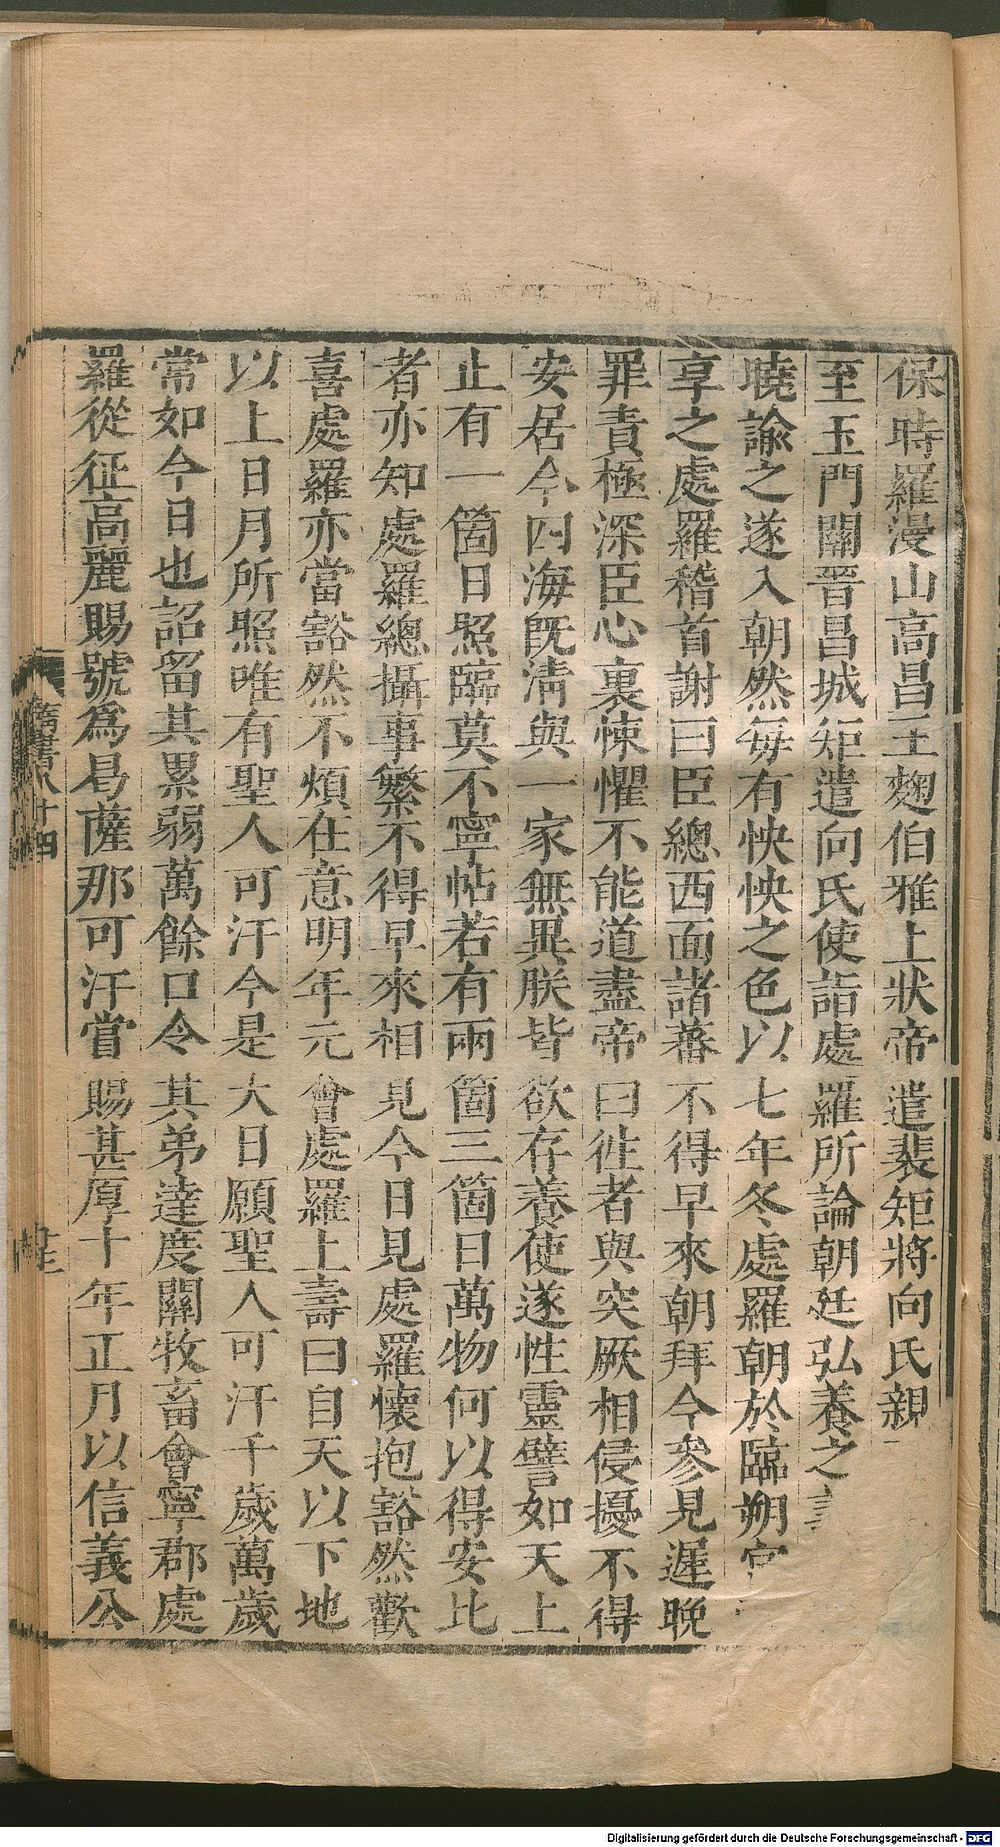 保時羅漫山高昌王麴伯雅上狀帝遣裴矩將向氏親
至玉門關晉昌城矩遣向氏使詣處羅所論朝廷弘養之
曉諭之遂入朝然每有怏怏之色以七年冬處羅朝於臨朔宮
享之處羅稽首謝曰臣總西面諸蕃不得早來朝拜今參見遲晚
罪責極深臣心裏悚懼不能道盡帝曰徃者與突厥相侵擾不得
安居今四海旣清與一家無異朕皆欲存養使遂性靈譬如天上
止有一箇日照臨莫不寧帖若有兩箇三箇日萬物何以得安比
者亦知處羅總攝事繁不得早來相見今日見處羅懷抱豁然歡
喜處羅亦當豁然不煩在意明年元會處羅上壽曰自天以下地
以上日月所照唯有聖人可汗今是大日願聖人可汗千歲萬歲
常如今日也詔留其累弱萬餘口令其弟達度關牧畜會寧郡處
羅從征高麗賜號為曷薩那可汗賞賜甚厚十年正月以信義公
隋書八十四
Digitalisierung gefördert durch die Deutsche Forschungsgemeinschaft - DFG